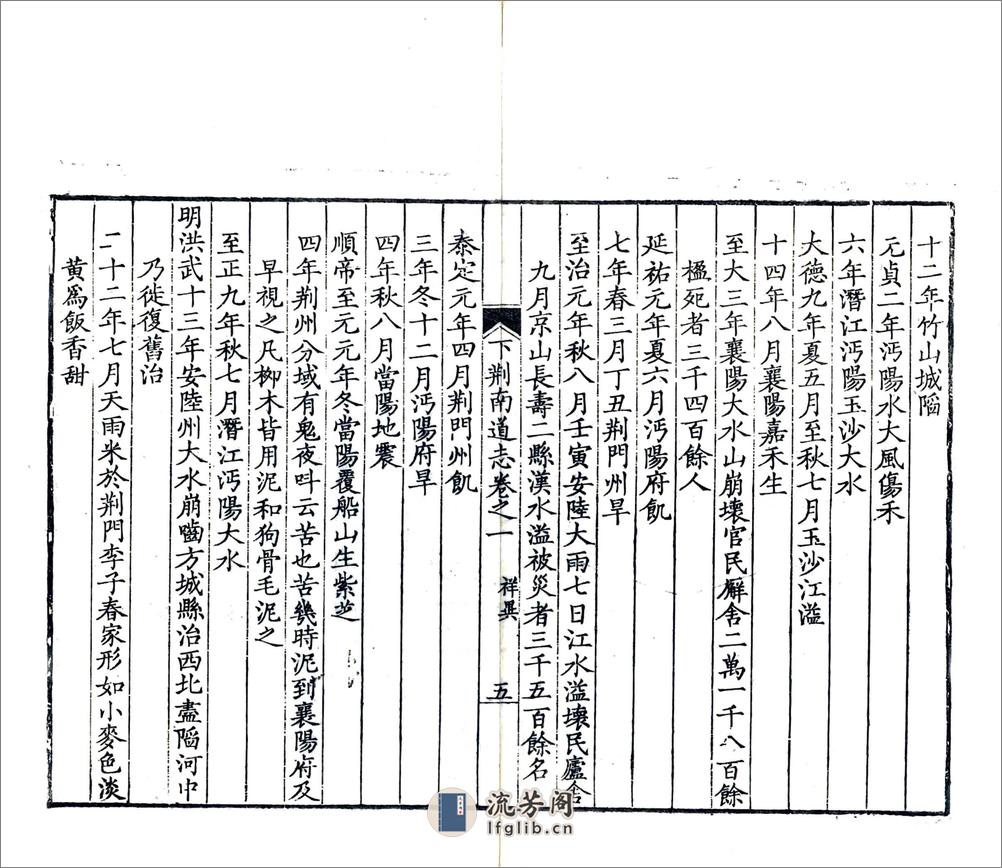 十二年竹山城陷
元貞二年沔陽水大風傷禾
六年潛江沔陽玉沙大水
大德九年夏五月至秋七月玉沙江溢
十四年八月襄陽嘉禾生
至大三年襄陽大水山崩壞官民廨舍二萬一千八百餘
楹死者三千四百餘人
延祐元年夏六月沔陽府飢
七年春三月丁丑荆門州旱
至治元年秋八月壬寅安陸大雨七日江水溢壞民廬舍
九月京山長壽二縣漢水溢被災者三千五百餘名
下荆南道志卷之一 祥異 五
泰定元年四月荆門州飢
三年冬十二月沔陽府旱
四年秋八月當陽地震
順帝至元元年冬當陽覆船山生紫芝
四年荆州分域有鬼夜呌云苦也苦幾時泥到襄陽府及
早視之凡栁木皆用泥和狗骨毛泥之
至正九年秋七月潛江沔陽大水
明洪武十三年安陸州大水崩嚙方城縣治西北盡陷河中
乃徙復舊治
二十二年七月天雨米於荆門李子春家形如小麥色淡
黃爲飯香甜
流芳阁
lfglib.cn